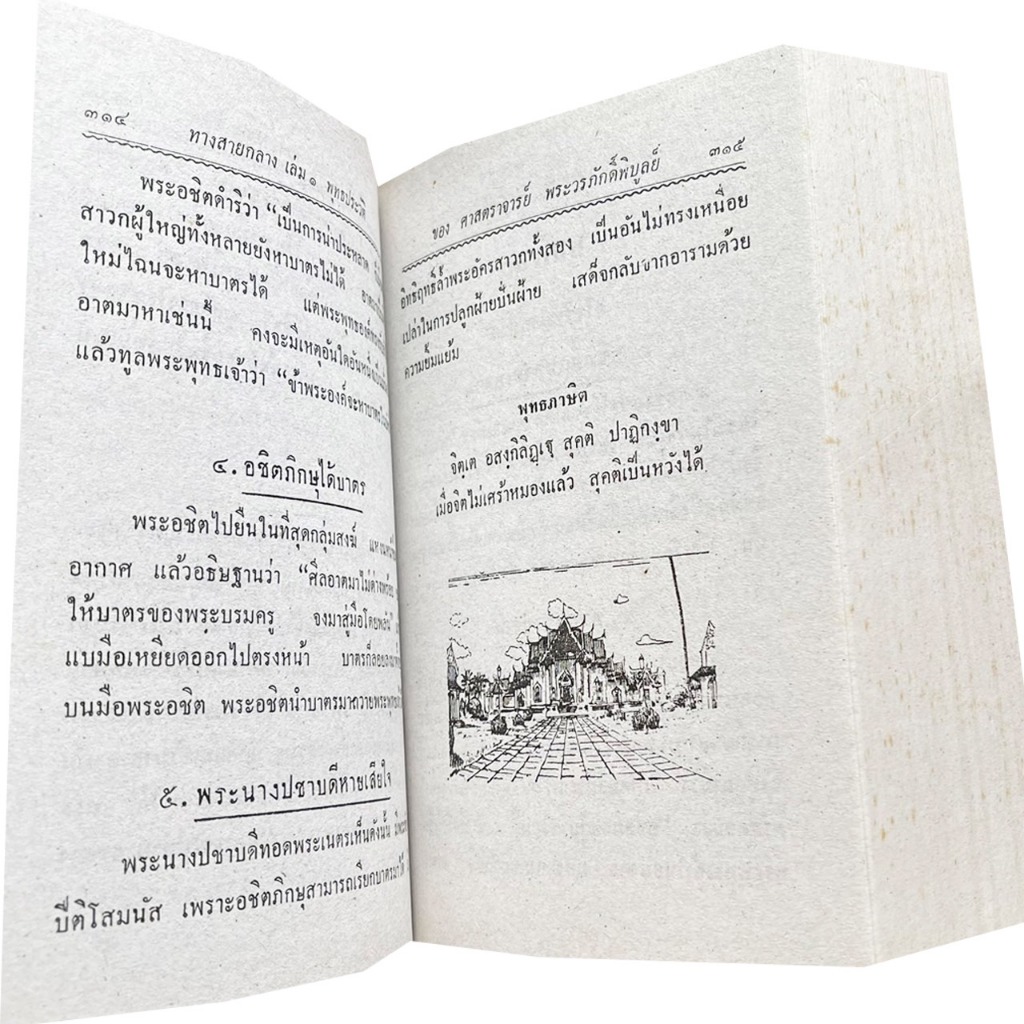 ๓๑๔ ทางสายกลาง เล่ม ๑ พุทธประวัติ
พระอชิตดำริว่า “เป็นการน่าประหลาด
สาวกผู้ใหญ่ทั้งหลายยังหาบาตรไม่ได้
ใหม่ไฉนจะหาบาตรได้ แต่พระพุทธองค์
อาตมาหาเช่นนี้ คงจะมีเหตุอันใดอันหนึ่ง
แล้วทูลพระพุทธเจ้าว่า “ข้าพระองค์จะหาบาตร
๔. อชิตภิกษุได้บาตร
พระอชิตไปยืนในที่สุดกลุ่มสงฆ์
อากาศ แล้วอธิษฐานว่า “ศีลอาตมาไม่ด่างพร้อย
ให้บาตรของพระบรมครู จงมาสู่มือโดยพลัน”
แบมือเหยียดออกไปตรงหน้า บาตรก็ลอย
บนมือพระอชิต พระอชิตนำบาตรมาถวาย
๕. พระนางปชาบดีหายเสียใจ
พระนางปชาบดีทอดพระเนตรเห็นดังนั้น
ปีติโสมนัส เพราะอชิตภิกษุสามารถเรียกบาตรมาได้
ของ ศาสตราจารย์ พระวรภักดิ์พิบูลย์ ๓๑๕
อิทธิฤทธิ์ล้ำพระอัครสาวกทั้งสอง เป็นอันไม่ทรงเหนื่อย
เปล่าในการปลูกฝ้ายปั่นฝ้าย เสด็จกลับจากอารามด้วย
ความยิ้มแย้ม
พุทธภาษิต
จิตฺเต อสงฺกิลิฏฺเฐ สุคติ ปาฏิกงฺขา
เมื่อจิตไม่เศร้าหมองแล้ว สุคติเป็นหวังได้